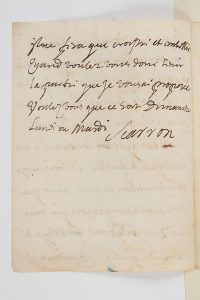 il ne sera que
Quand voulez vous donc tenir
la partie que je vous ai propose
Voulez vous que ce soit Dimanche
Lundi ou Mardi Scarron